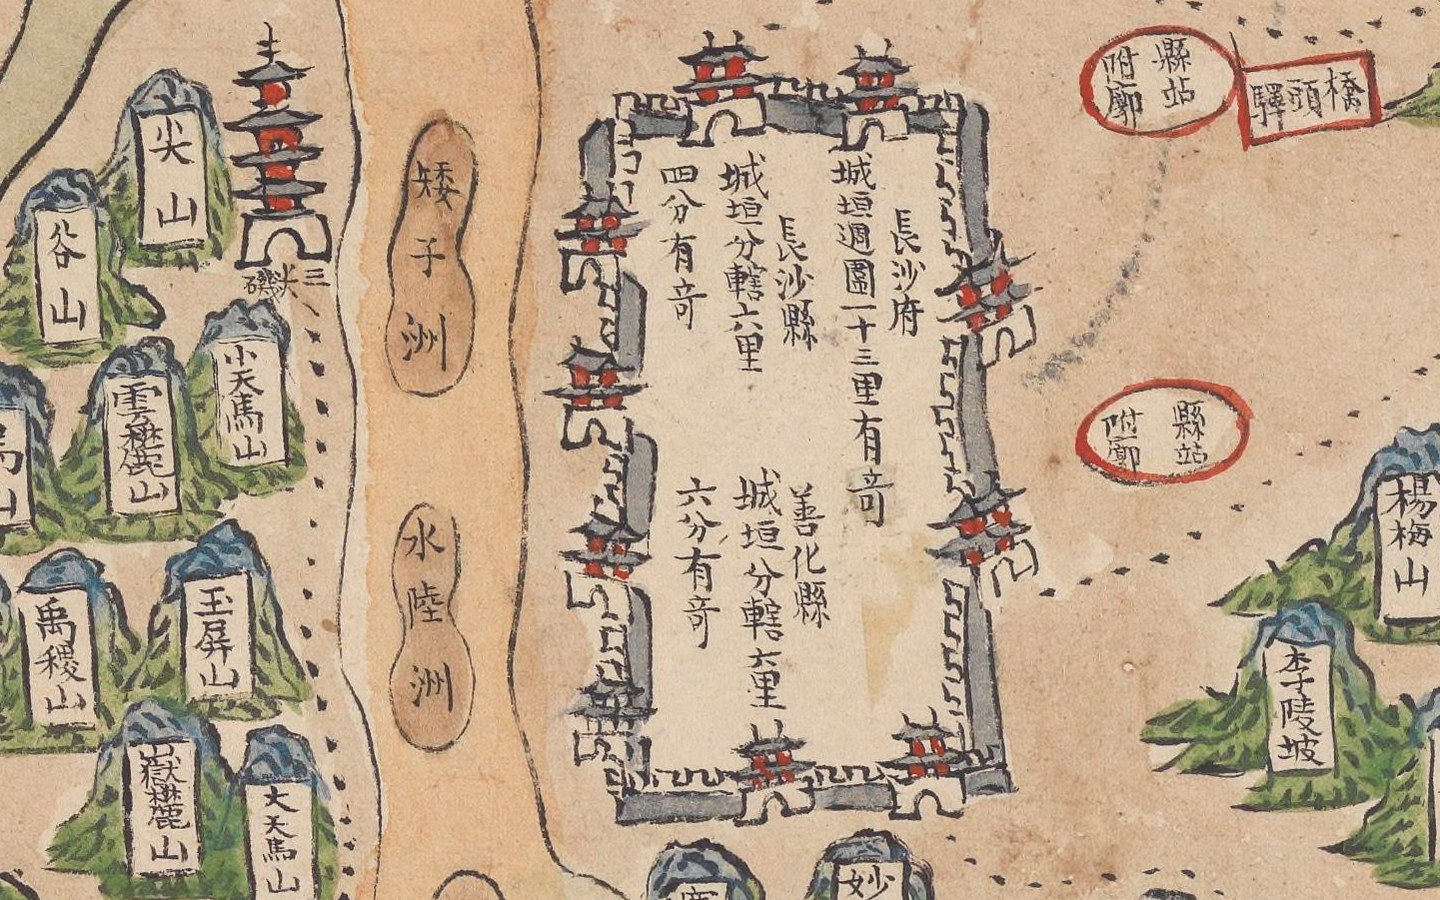 長沙府
城垣週圍一十三里有竒
長沙縣
城垣分轄六里
四分有竒
善化縣
城垣分轄六里
六分有竒
縣站
附廓
橋頭驛
縣站
附廓
楊梅山
李陵坡
妙
矮子洲
水陸洲
三汊磯
尖山
谷山
小天馬山
雲麓山
玉屏山
禹稷山
嶽麓山
大天馬山